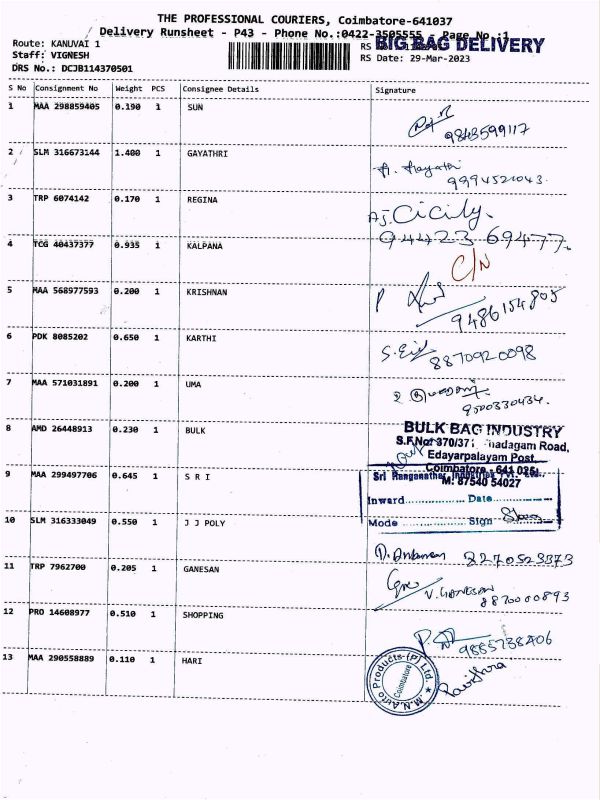 THE PROFESSIONAL COURIERS, Coimbatore-641037
Delivery Runsheet - P43 - Phone No.:0422-3505555 - Page No.:1
BIG BAG DELIVERY
Route: KANUVAI 1
RS
Staff: VIGNESH
RS Date: 29-Mar-2023
DRS No.: DCJB114370501
S No Consignment No Weight PCS Consignee Details Signature
1 MAA 298859405 0.190 1 SUN
9843599117
2 SLM 316673144 1.400 1 GAYATHRI
9994521043
3 TRP 6074142 0.170 1 REGINA
Cicily.
94423 69477.
4 TCG 40437377 0.935 1 KALPANA
C/N
5 MAA 568977593 0.200 1 KRISHNAN
9486154805
6 PDK 8085202 0.650 1 KARTHI
8870920098
7 MAA 571031891 0.200 1 UMA
9500330434.
8 AMD 26448913 0.230 1 BULK
BULK BAG INDUSTRY
S.F.No: 370/371 Thadagam Road,
Edayarpalayam Post,
Coimbatore - 641 025
M: 87540 54027
9 MAA 299497706 0.645 1 S R I
Sri Ranganathar Industries Pvt. Ltd.,
Inward Date
Mode Sign
10 SLM 316333049 0.550 1 J J POLY
8270523373
11 TRP 7962700 0.205 1 GANESAN
V. GANESAN
8870000893
12 PRO 14608977 0.510 1 SHOPPING
9885738406
13 MAA 290558889 0.110 1 HARI
M.N. Auto Products (P) Ltd.
Coimbatore
Pavithra